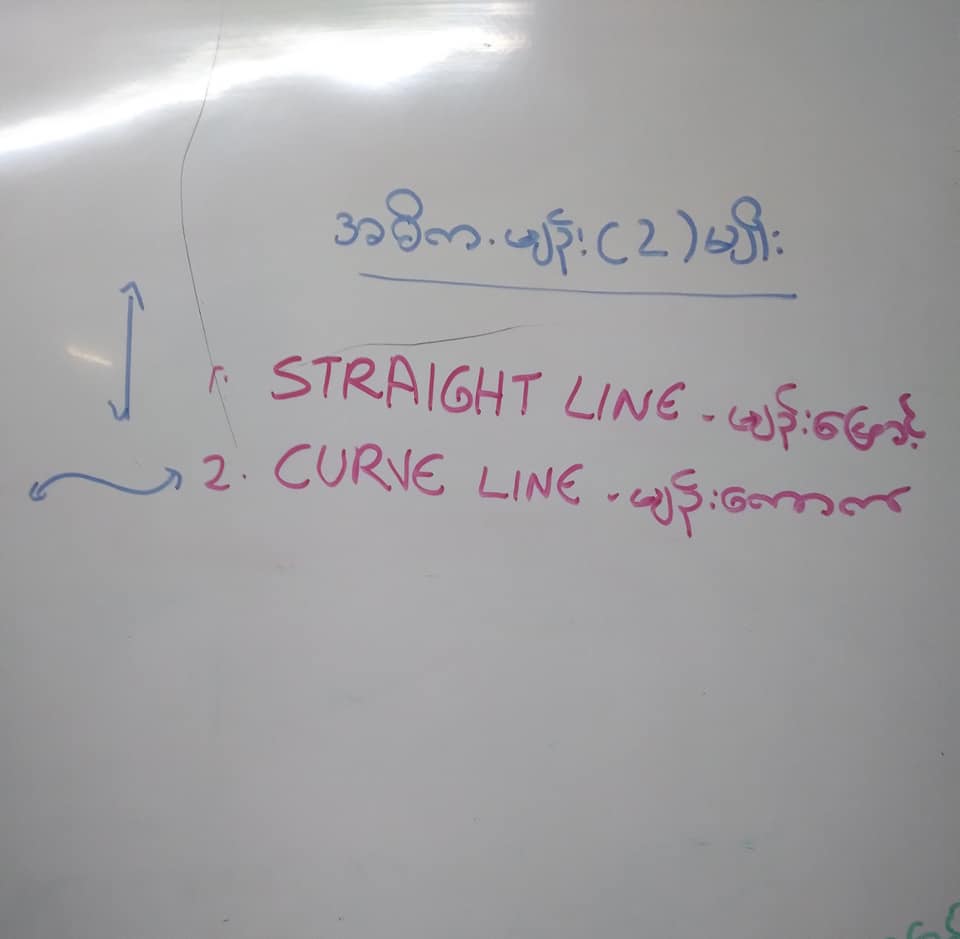 အဓိက မျဉ်း (2) မျိုး
1. STRAIGHT LINE - မျဉ်းဖြောင့်
2. CURVE LINE - မျဉ်းကောက်